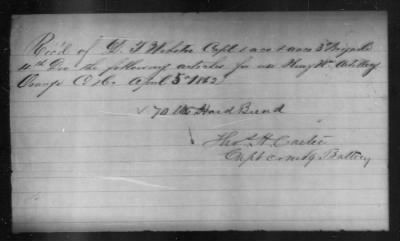 Rec'd of D. F. Webster Capt & a c s 5 Brigade
4th Div the following articles for use Art'llery
Orange C.H. April 5th 1862
70 lbs Hard Bread
Tho. H. Carter
Capt comdg Battery